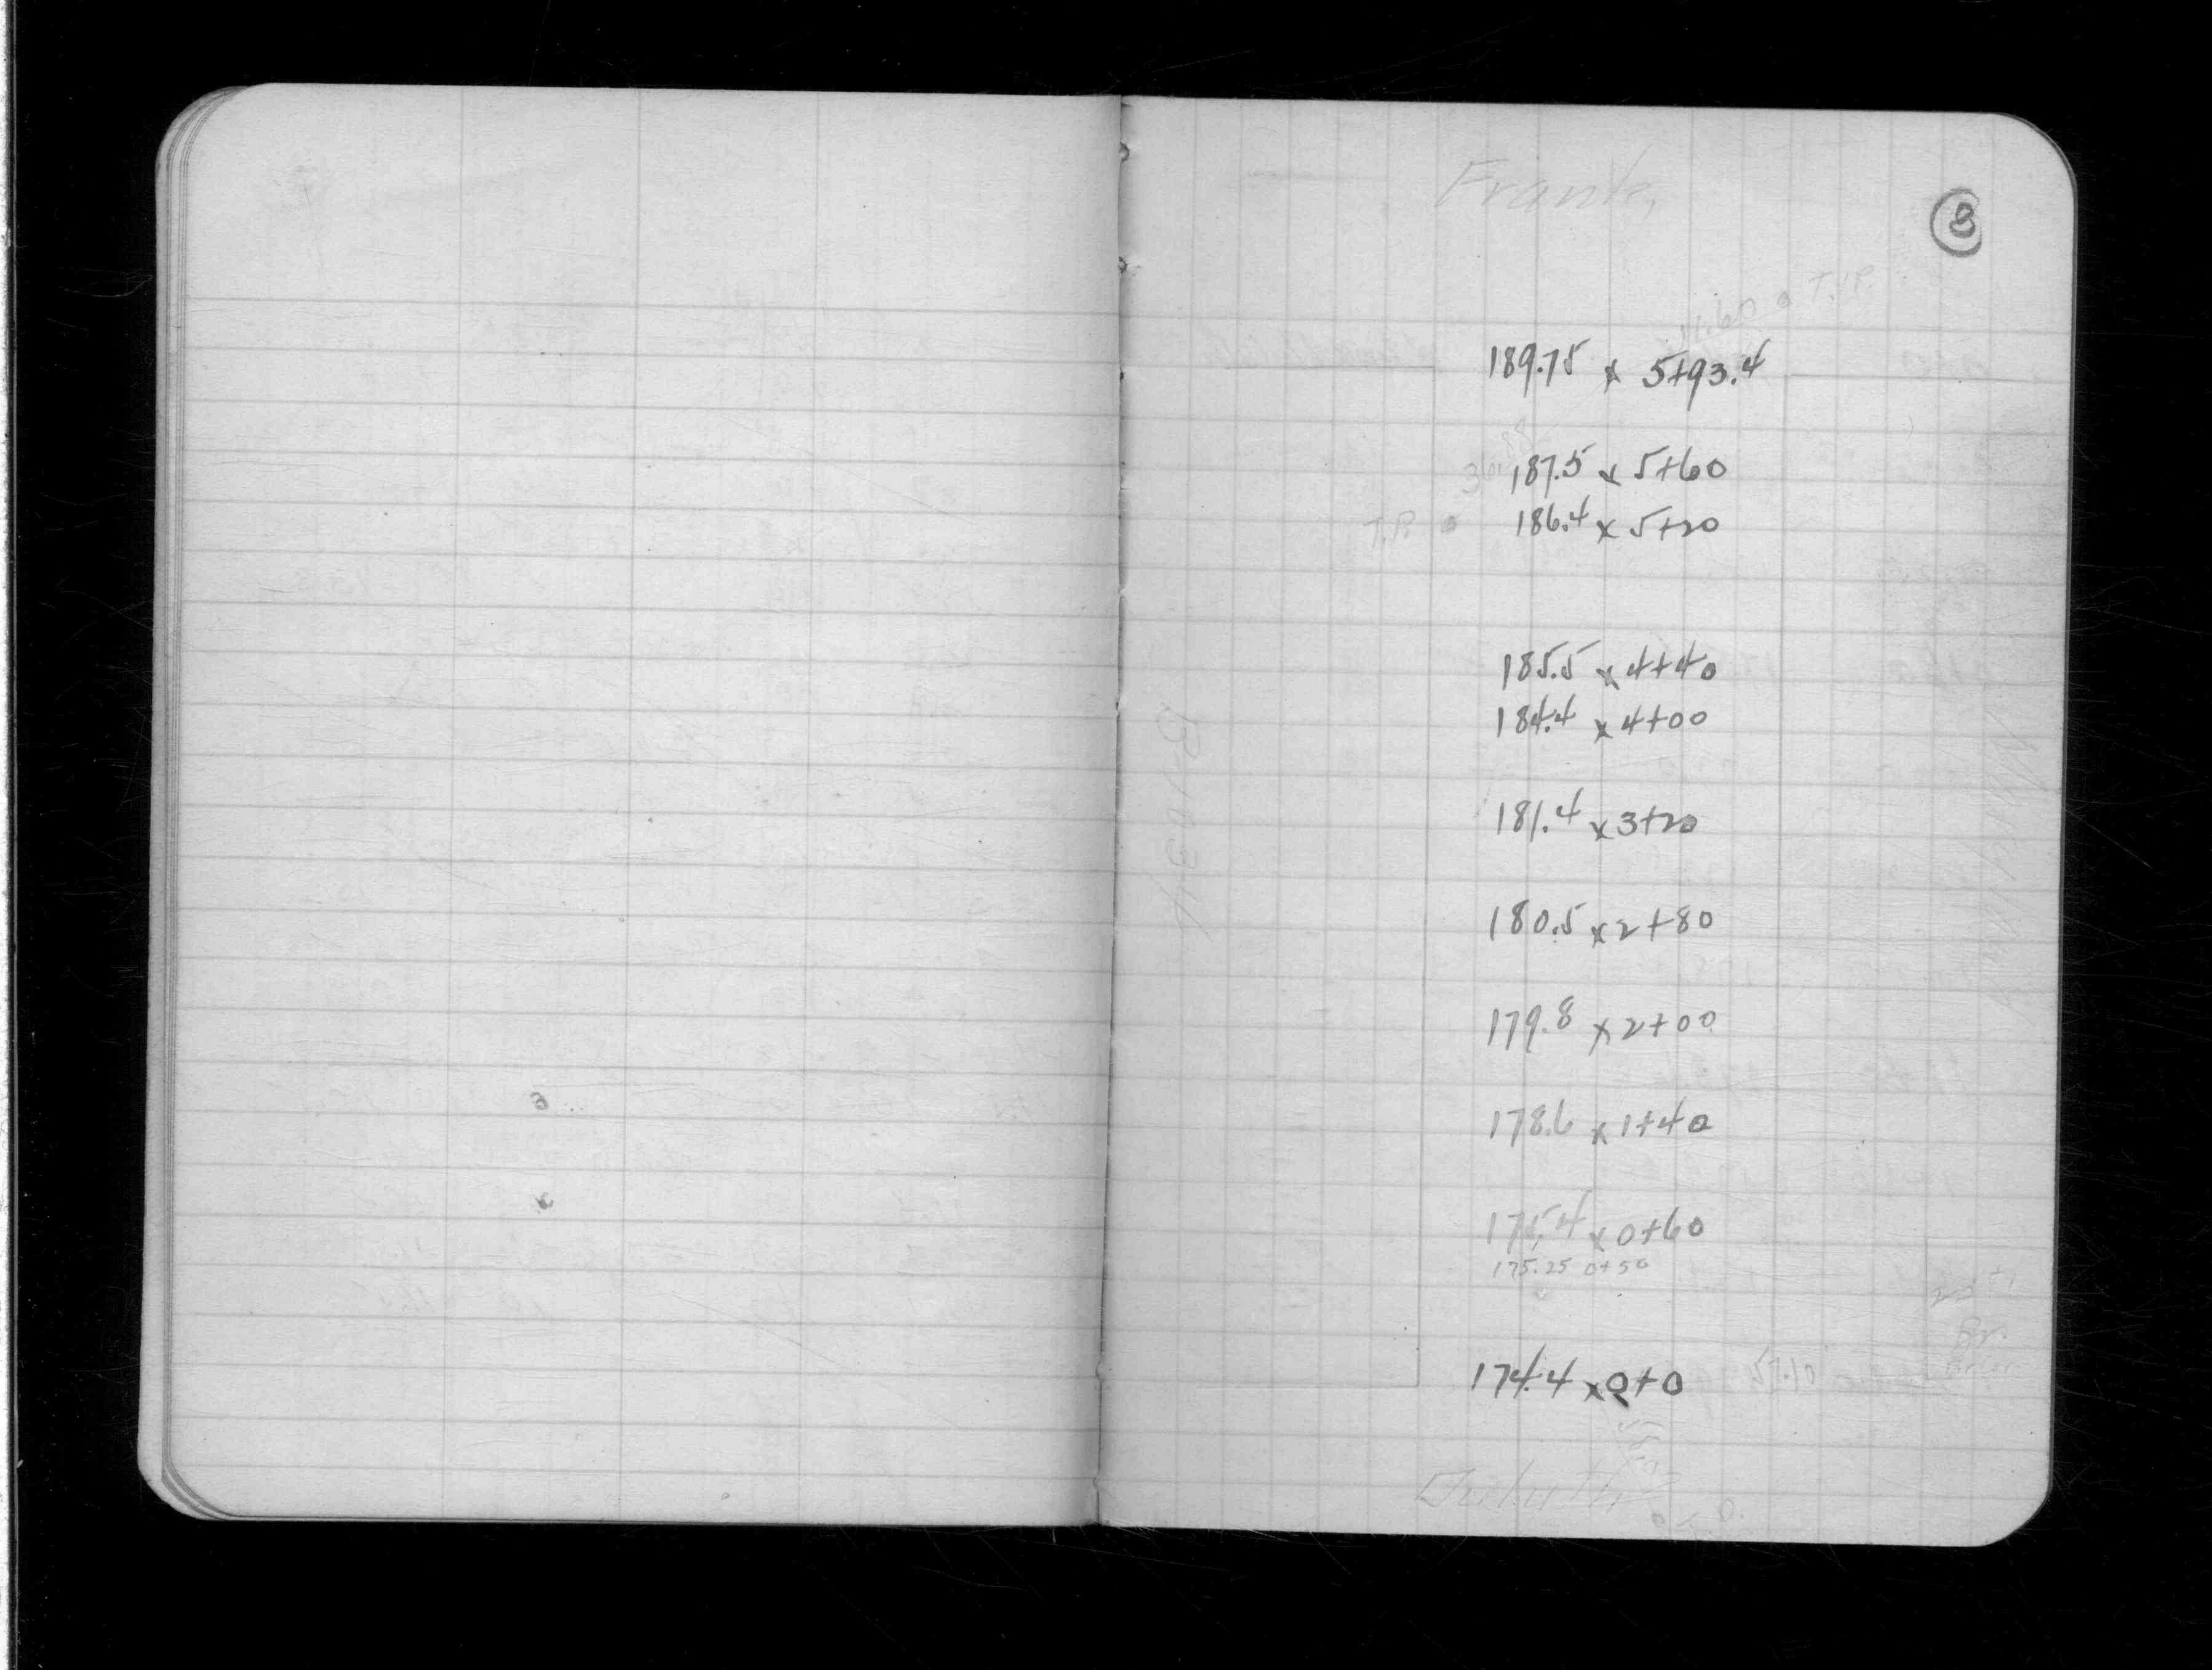 8
189.75 x 5+93.4
187.5 x 5+60
T.P. 186.4 x 5+20
185.5 x 4+40
184.4 x 4+00
181.4 x 3+20
180.5 x 2+80
179.8 x 2+00
178.6 x 1+40
175.4 x 0+60
175.25 0+50
174.4 x 0+0